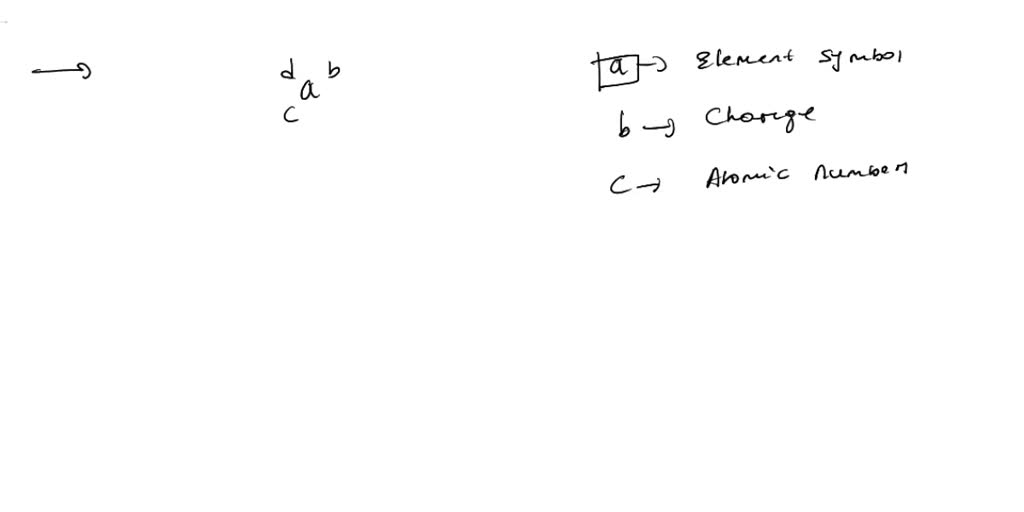 → d b a → Element symbol
a
c b → Charge
c → Atomic number